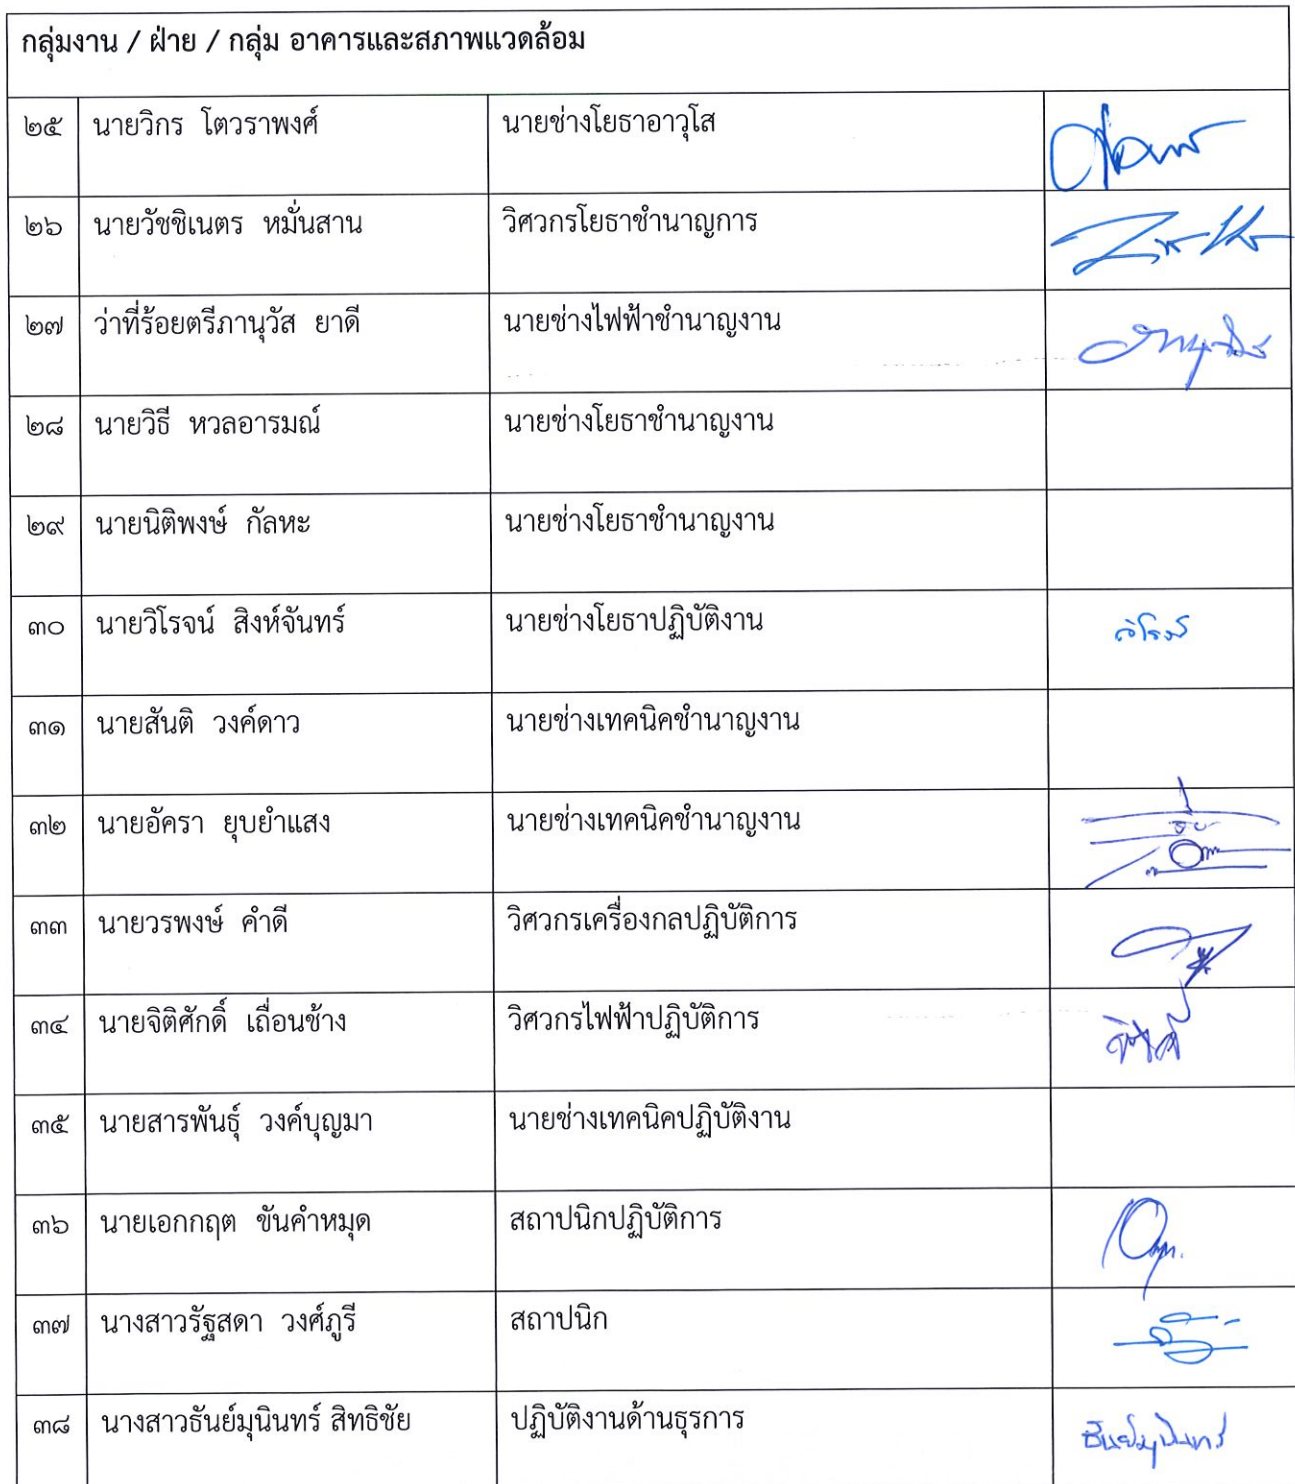 กลุ่มงาน / ฝ่าย / กลุ่ม อาคารและสภาพแวดล้อม
๒๕ นายวิกร โตวราพงศ์ นายช่างโยธาอาวุโส
๒๖ นายวัชชิเนตร หมั่นสาน วิศวกรโยธาชำนาญการ
๒๗ ว่าที่ร้อยตรีภานุวัส ยาดี นายช่างไฟฟ้าชำนาญงาน
๒๘ นายวิธี หวลอารมณ์ นายช่างโยธาชำนาญงาน
๒๙ นายนิติพงษ์ กัลหะ นายช่างโยธาชำนาญงาน
๓๐ นายวิโรจน์ สิงห์จันทร์ นายช่างโยธาปฏิบัติงาน วิโรจน์
๓๑ นายสันติ วงค์ดาว นายช่างเทคนิคชำนาญงาน
๓๒ นายอัครา ยุบยำแสง นายช่างเทคนิคชำนาญงาน
๓๓ นายวรพงษ์ คำดี วิศวกรเครื่องกลปฏิบัติการ
๓๔ นายจิติศักดิ์ เถื่อนช้าง วิศวกรไฟฟ้าปฏิบัติการ
๓๕ นายสารพันธุ์ วงค์บุญมา นายช่างเทคนิคปฏิบัติงาน
๓๖ นายเอกกฤต ขันคำหมุด สถาปนิกปฏิบัติการ
๓๗ นางสาวรัฐสดา วงศ์ภูรี สถาปนิก
๓๘ นางสาวธันย์มุนินทร์ สิทธิชัย ปฏิบัติงานด้านธุรการ ธันย์มุนินทร์